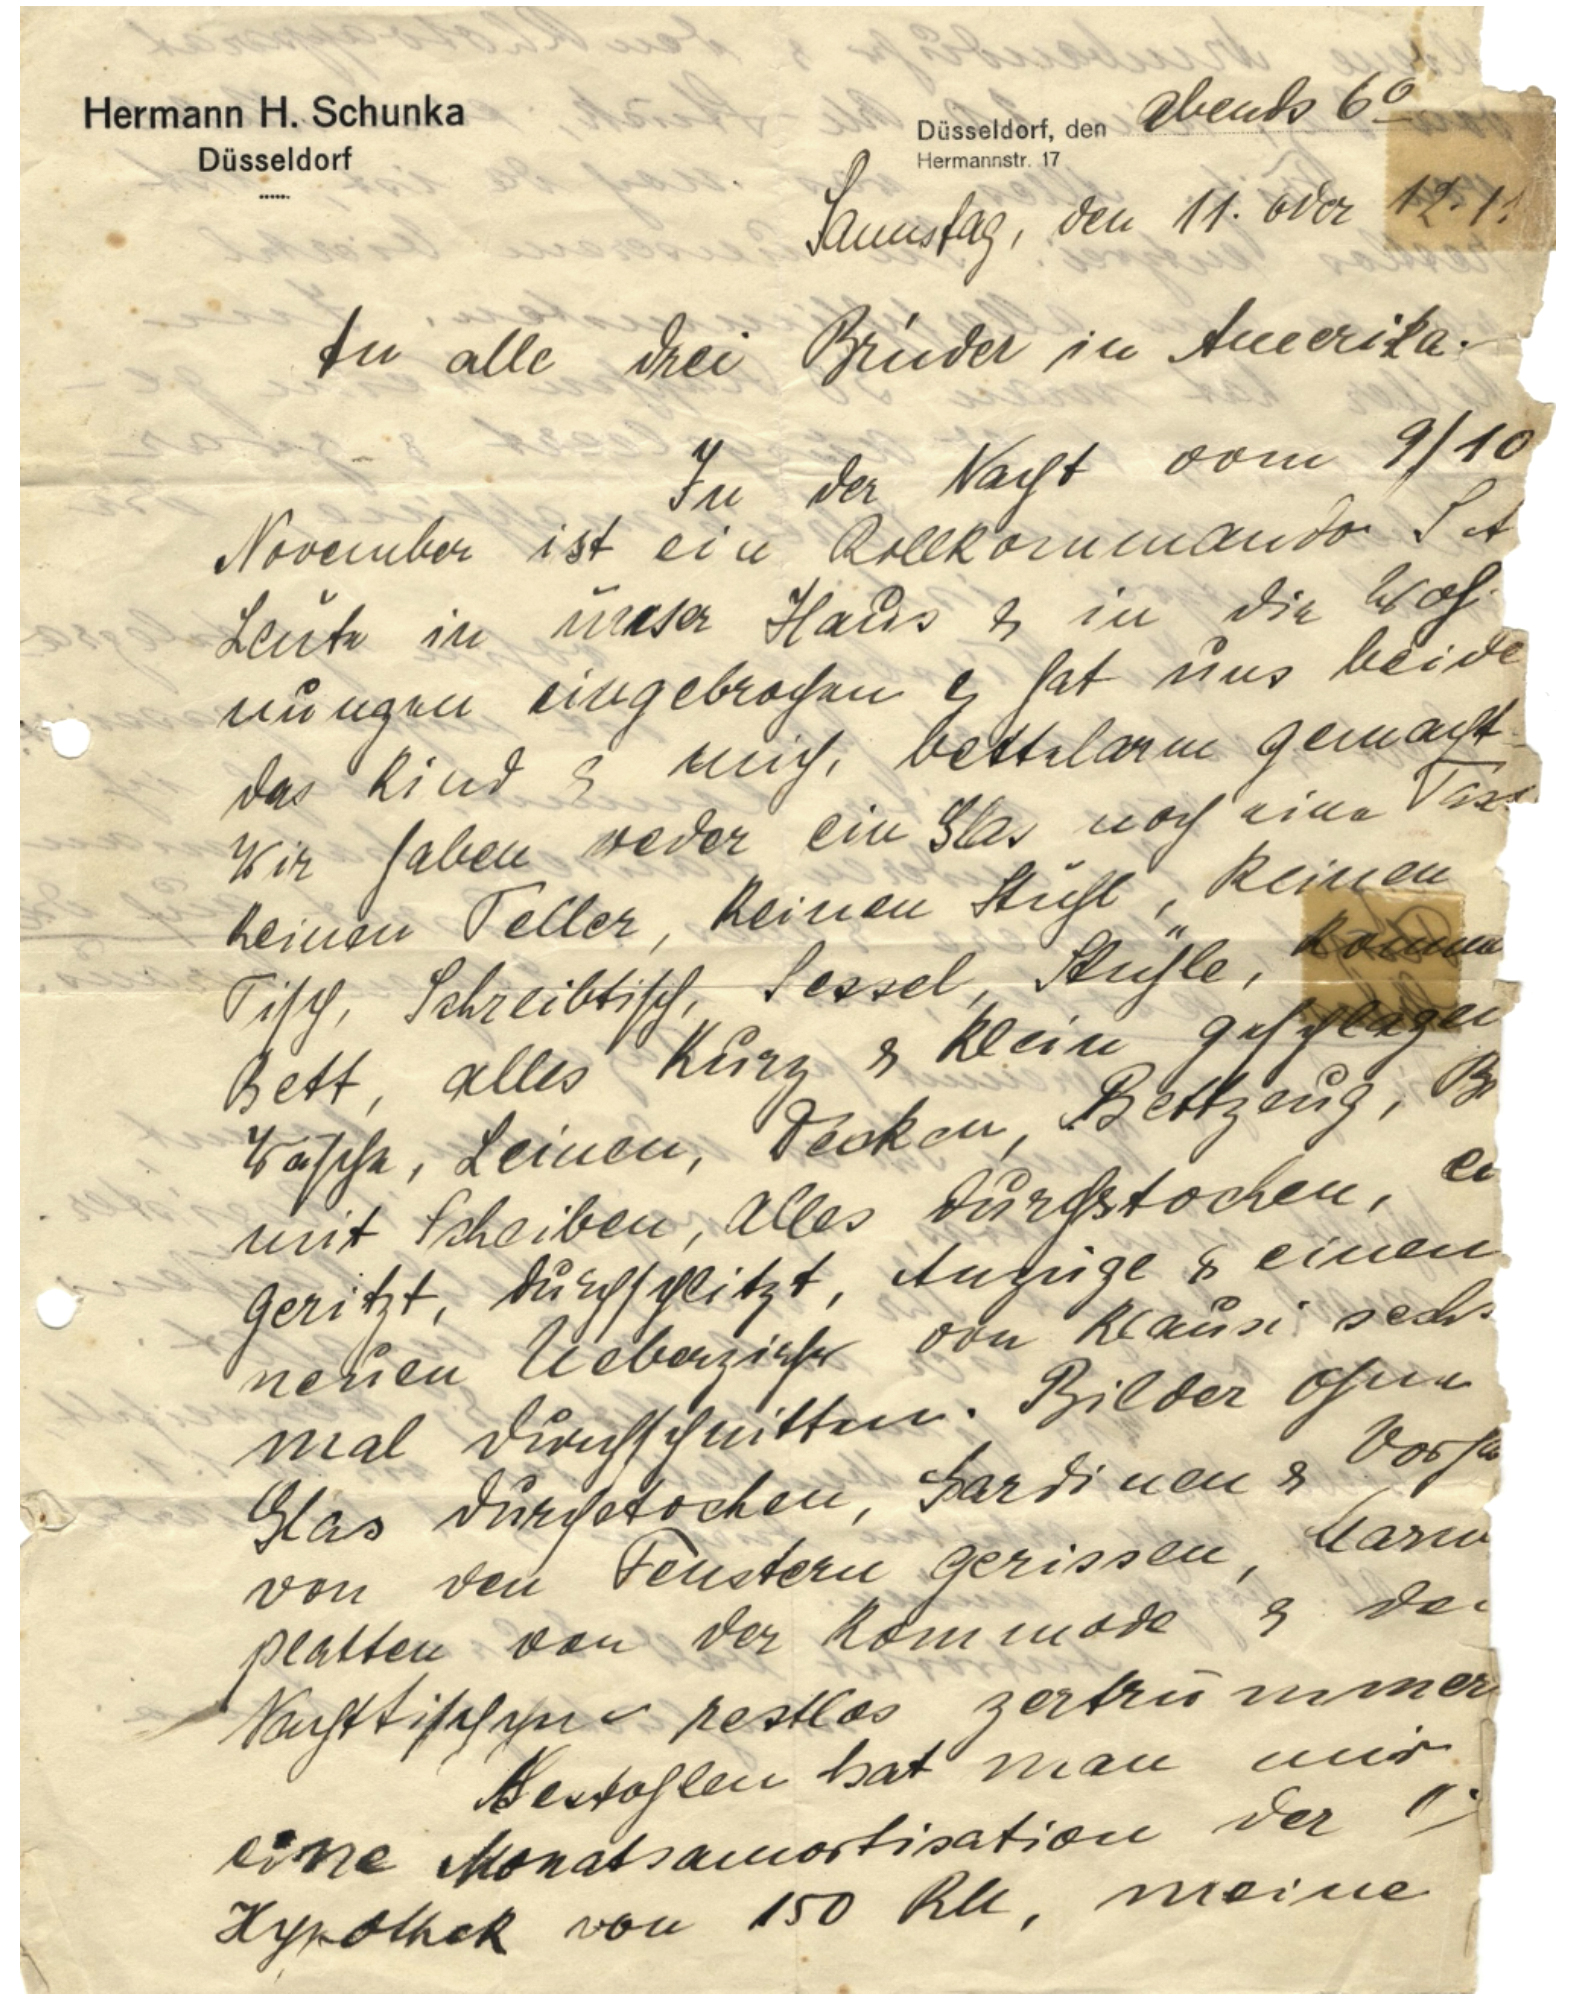 Hermann H. Schunka
Düsseldorf
Düsseldorf, den abends 6º
Hermannstr. 17
Samstag, den 11. oder 12. 11
An alle drei Brüder in Amerika.
In der Nacht vom 9/10
November ist ein Rollkommando S A
Leute in unser Haus & in die Woh-
nungen eingebrochen & hat uns beide
das Kind & mich, bettelarm gemacht
Wir haben weder ein Glas noch eine Tass
keinen Teller, keinen Stuhl, keinen
Tisch, Schreibtisch, Sessel, Stühle,
Bett, alles kurz & klein geschlagen
Wäsche, Leinen, Decken, Bettzeug, B
mit Scheiben, alles durchstochen, ei
geritzt, durchschlitzt, Anzüge & einen
neuen Ueberzieher von Klausi sechs
mal durchschnitten. Bilder ohne
Glas durchstochen, Gardinen & Vorhä
von den Fenstern gerissen, Marm
platten von der Kommode & de
Nachttischchen restlos zertrümmer
Gestohlen hat man mir
eine Monatsamortisation der
Hypothek von 150 RM, meine